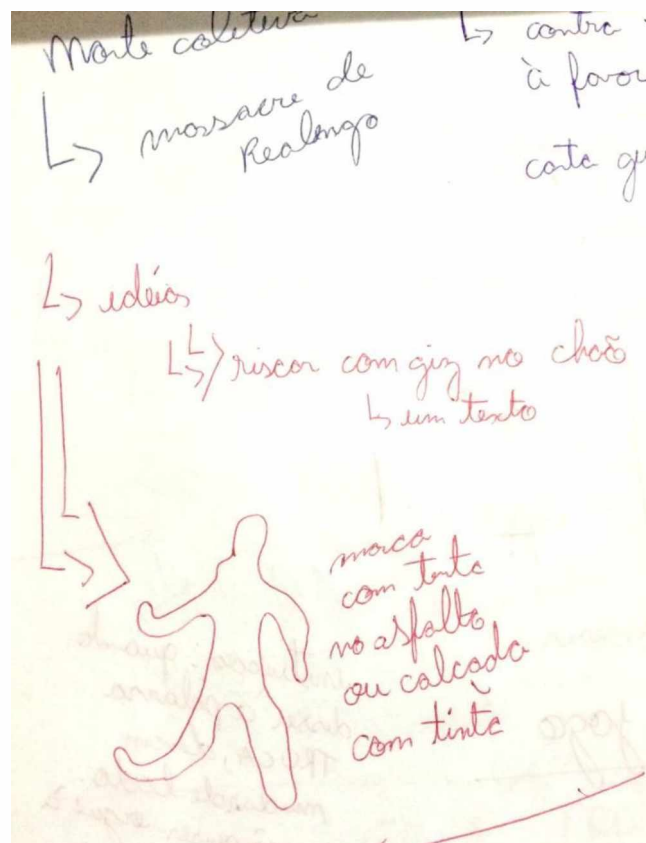 Morte coletiva
↳ massacre de
Realengo
↳ contra
à favor
carta
↳ idéias
↳ riscar com giz no chão
↳ um texto
marca
com tinta
no asfalto
ou calcada
com tinta